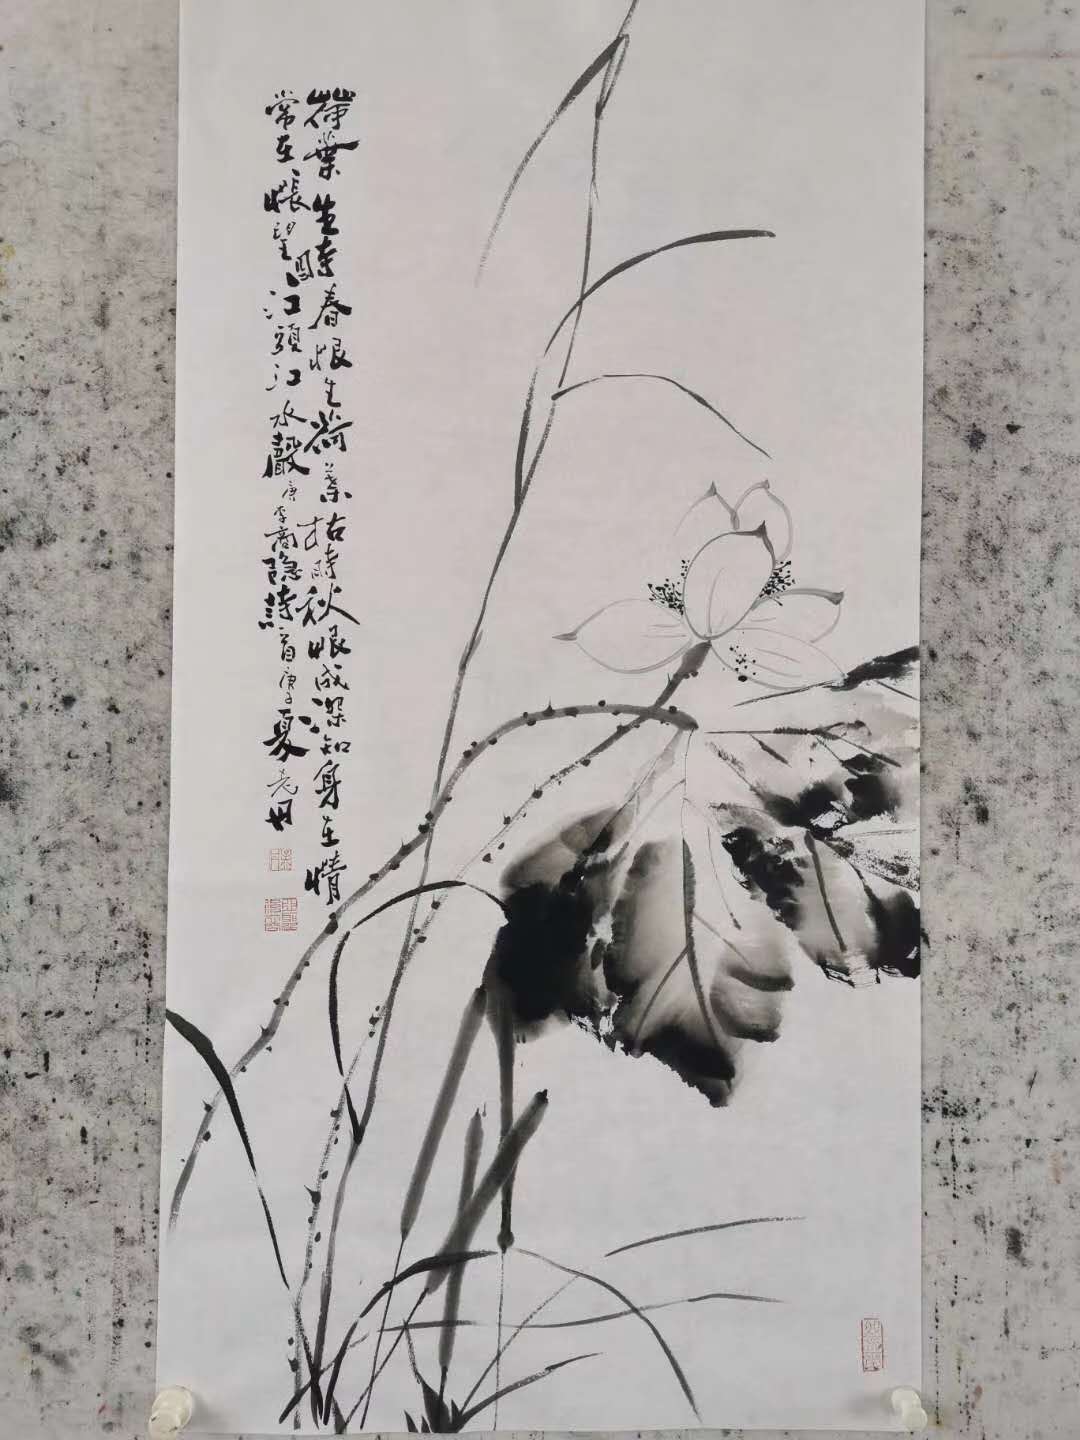 荷葉生時春恨生荷葉枯時秋恨成深知身在情
常在悵望江頭江水聲唐李商隐詩一首庚子夏老丹